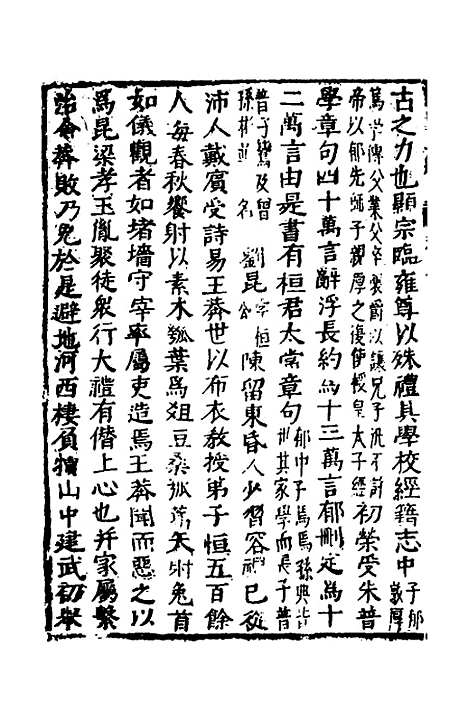 古之力也顯宗臨雍尊以殊禮具學校經籍志中子郁敦厚
篤學傳父業父卒襲爵以讓兄子汎不許
帝以郁先師子親厚之復使授皇太子經初榮受朱普
學章句四十萬言辭浮長約爲十三萬言郁刪定爲十
二萬言由是書有桓君太常章句郁中子焉焉孫典皆
世其家學而長子普
普子鸞及曾
孫彬並名劉昆字桓公陳留東昏人少習容禮已從
沛人戴賓受詩易王莽世以布衣教授弟子恒五百餘
人每春秋饗射以素木瓠葉爲俎豆桑弧蒿矢射兔首
如儀觀者如堵墻守宰率屬吏造焉王莽聞而惡之以
爲昆梁孝王胤聚徒衆行大禮有僭上心也并家屬繫
治會莽敗乃免於是避地河西棲負犢山中建武初舉